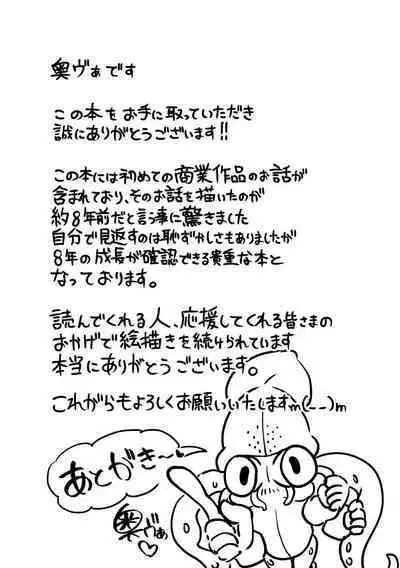 奥ヴぁです
この本をお手に取っていただき
誠にありがとうございます!!
この本には初めての商業作品のお話が
含まれており、そのお話を描いたのが
約8年前だと言う事に驚きました
自分で見返すのは恥ずかしさもありましたが
8年の成長が確認できる貴重な本と
なっております。
読んでくれる人、応援してくれる皆さまの
おかげで絵描きを続けられています
本当にありがとうございます。
これからもよろしくお願いいたしますm(__)m
あとがき〜
奥ヴぁ♡